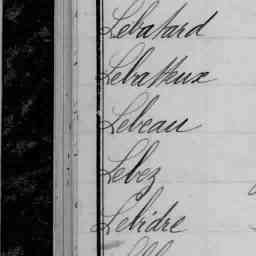 Lebatard
Lebatteux
Lebeau
Lebez
Lebidre